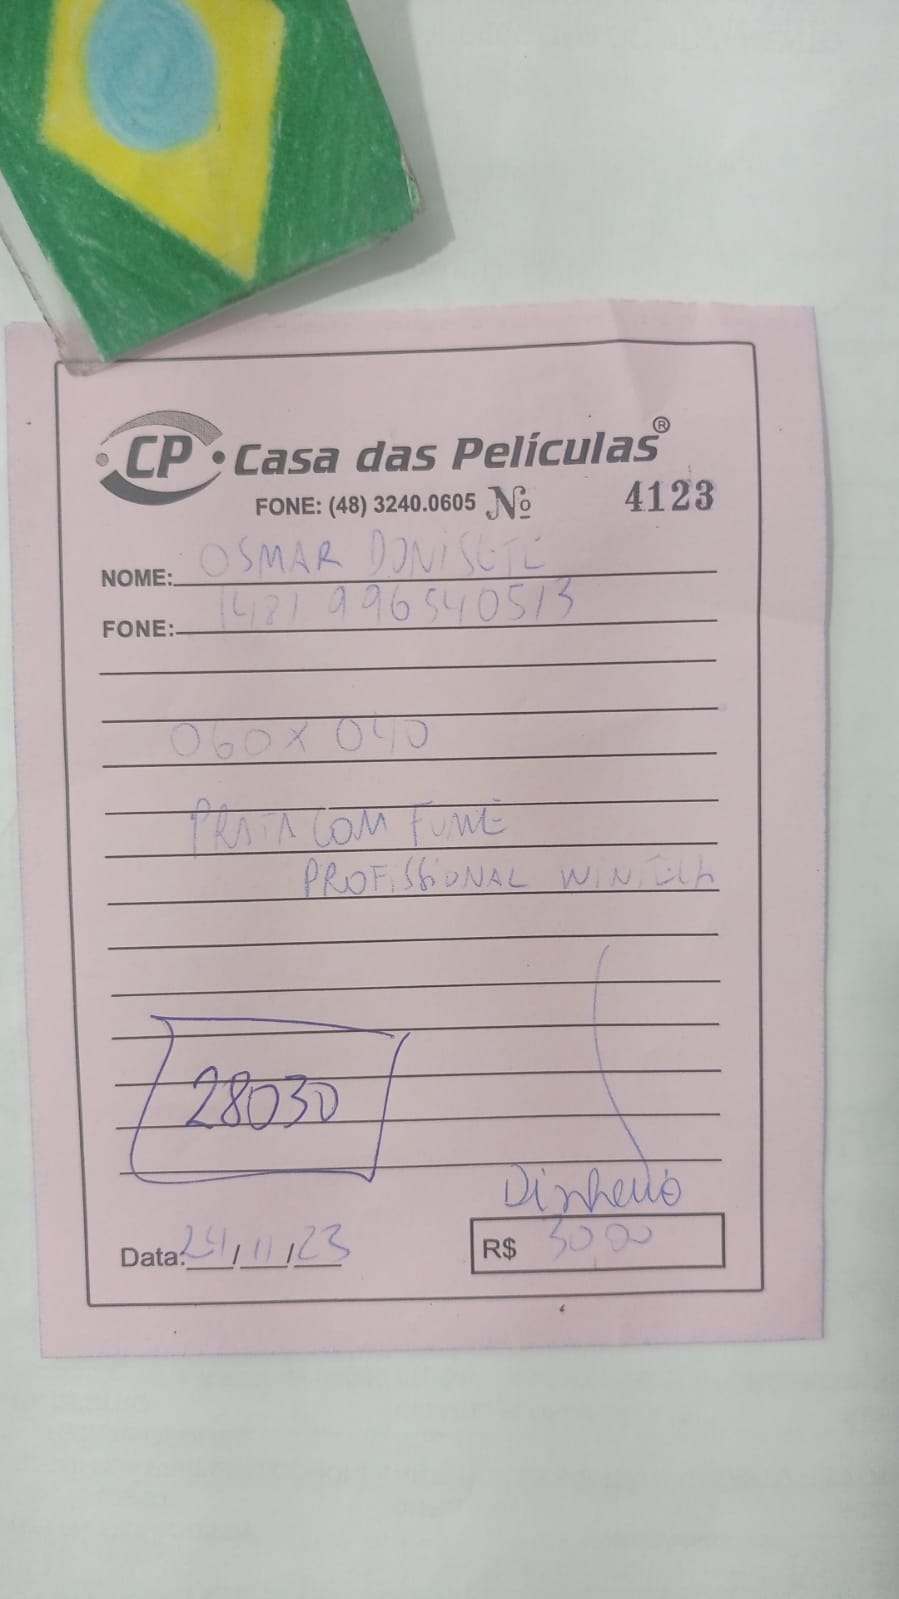 CP Casa das Películas®
FONE: (48) 3240.0605 Nº 4123
NOME: OSMAR DONISETE
FONE: (48) 996540513
060 X 040
PRATA COM FUMÊ
PROFISSIONAL WINTECH
28030
Dinheiro
Data: 24/11/23 R$ 30,00